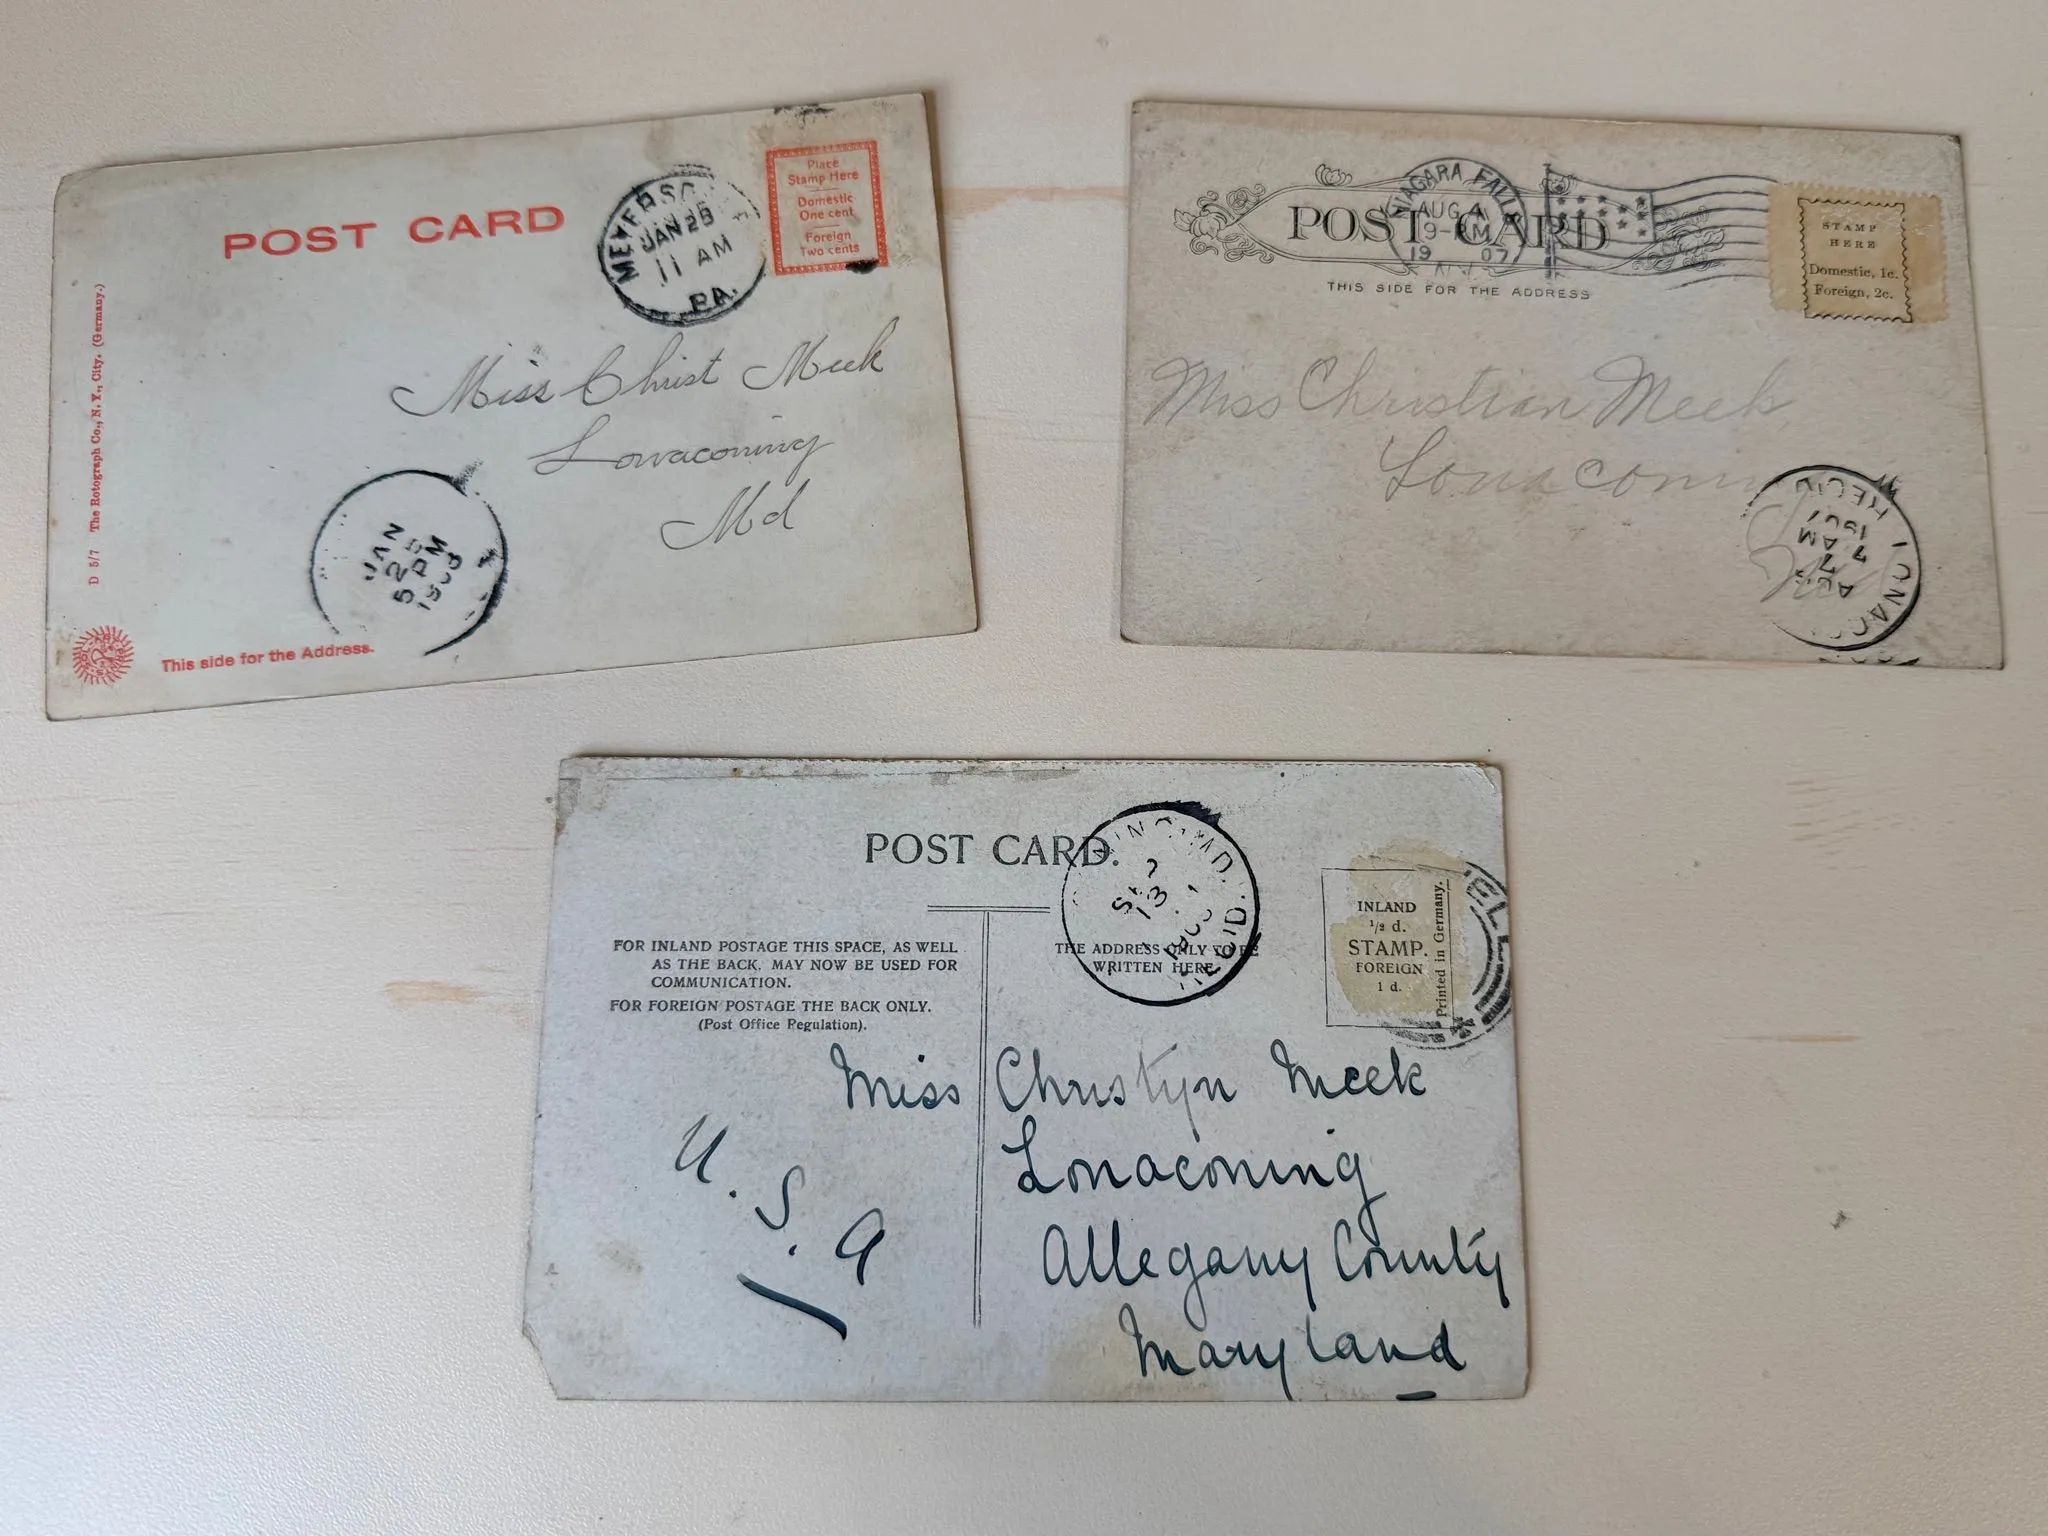 POST CARD
JAN 25
11 AM
PA.
Place
Stamp Here
Domestic
One cent
Foreign
Two cents
Miss Christ Meek
Lonaconing
Md
D 5/7 The Rotograph Co., N. Y., City. (Germany.)
JAN
5 PM
This side for the Address.
POST CARD
THIS SIDE FOR THE ADDRESS
NIAGARA FALLS
AUG 4
9-PM
19 07
N.Y.
STAMP
HERE
Domestic, 1c.
Foreign, 2c.
Miss Christian Meek
REC'D
AUG
7
7 AM
1907
POST CARD.
FOR INLAND POSTAGE THIS SPACE, AS WELL
AS THE BACK, MAY NOW BE USED FOR
COMMUNICATION.
FOR FOREIGN POSTAGE THE BACK ONLY.
(Post Office Regulation).
THE ADDRESS ONLY TO BE
WRITTEN HERE.
MD.
13
REC'D.
INLAND
½ d.
STAMP.
FOREIGN
1 d.
Printed in Germany.
Miss Christyn Meek
Lonaconing
Allegany County
Maryland
U.S.A